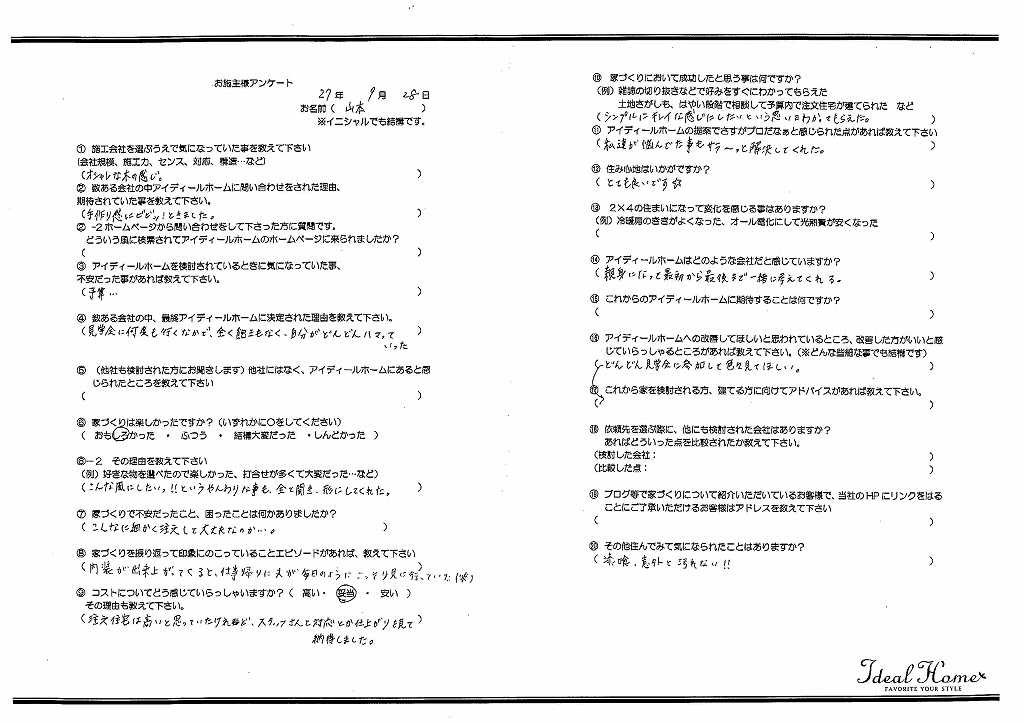 お施主様アンケート
27年 9月 28日
お名前 ( 山本 )
※イニシャルでも結構です。
① 施工会社を選ぶうえで気になっていた事を教えて下さい
(会社規模、施工力、センス、対応、構造…など)
(オシャレな木の感じ。 )
② 数ある会社の中アイディールホームに問い合わせをされた理由、
期待されていた事を教えて下さい。
(手作り感にビビッ!ときました。 )
②-2ホームページから問い合わせをして下さった方に質問です。
どういう風に検索されてアイディールホームのホームページに来られましたか?
( )
③ アイディールホームを検討されているときに気になっていた事、
不安だった事があれば教えて下さい。
(予算… )
④ 数ある会社の中、最終アイディールホームに決定された理由を教えて下さい。
(見学会に何度も行くなかで、全く飽きもなく、自分がどんどんハマって )
いった
⑤ (他社も検討された方にお聞きします)他社にはなく、アイディールホームにあると感
じられたところを教えて下さい
( )
⑥ 家づくりは楽しかったですか?(いずれかに○をしてください)
( おもしろかった ・ ふつう ・ 結構大変だった ・しんどかった )
⑥-2 その理由を教えて下さい
(例)好きな物を選べたので楽しかった、打合せが多くて大変だった…など)
(こんな風にしたいっ!!というやんわりな事も、全て聞き、形にしてくれた。 )
⑦ 家づくりで不安だったこと、困ったことは何かありましたか?
(こんなに細かく注文して大丈夫なのか…。 )
⑧ 家づくりを振り返って印象にのこっていることエピソードがあれば、教えて下さい
(内装が出来上がってくると、仕事帰りに夫が毎日のようにこっそり見に行っていた(笑) )
⑨ コストについてどう感じていらっしゃいますか?( 高い・ 妥当 ・ 安い )
その理由も教えて下さい。
(注文住宅は高いと思っていたけれど、スタッフさんと対応とか仕上がりを見て )
納得しました。
⑩ 家づくりにおいて成功したと思う事は何ですか?
(例)雑誌の切り抜きなどで好みをすぐにわかってもらえた
土地さがしも、はやい段階で相談して予算内で注文住宅が建てられた など
(シンプルにキレイな感じにしたいという思いはわかってもらえた。 )
⑪ アイディールホームの提案でさすがプロだなぁと感じられた点があれば教えて下さい
(私達が悩んでた事もサラ〜っと解決してくれた。 )
⑫ 住み心地はいかがですか?
( とても良いです☆ )
⑬ 2×4の住まいになって変化を感じる事はありますか?
(例)冷暖房のききがよくなった、オール電化にして光熱費が安くなった
( )
⑭ アイディールホームはどのような会社だと感じていますか?
( 親身になって最初から最後まで一緒に考えてくれる。 )
⑮ これからのアイディールホームに期待することは何ですか?
( )
⑯ アイディールホームへの改善してほしいと思われているところ、改善した方がいいと感
じていらっしゃるところがあれば教えて下さい。(※どんな些細な事でも結構です)
どんどん見学会に参加して色々見てほしい。 )
⑰ これから家を検討される方、建てる方に向けてアドバイスがあれば教えて下さい。
( )
⑱ 依頼先を選ぶ際に、他にも検討された会社はありますか?
あればどういった点を比較されたか教えて下さい。
(検討した会社: )
(比較した点: )
⑲ ブログ等で家づくりについて紹介いただいているお客様で、当社のHPにリンクをはる
ことにご了承いただけるお客様はアドレスを教えて下さい
( )
⑳ その他住んでみて気になられたことはありますか?
(漆喰、意外と汚れない!! )
Ideal Home
FAVORITE YOUR STYLE